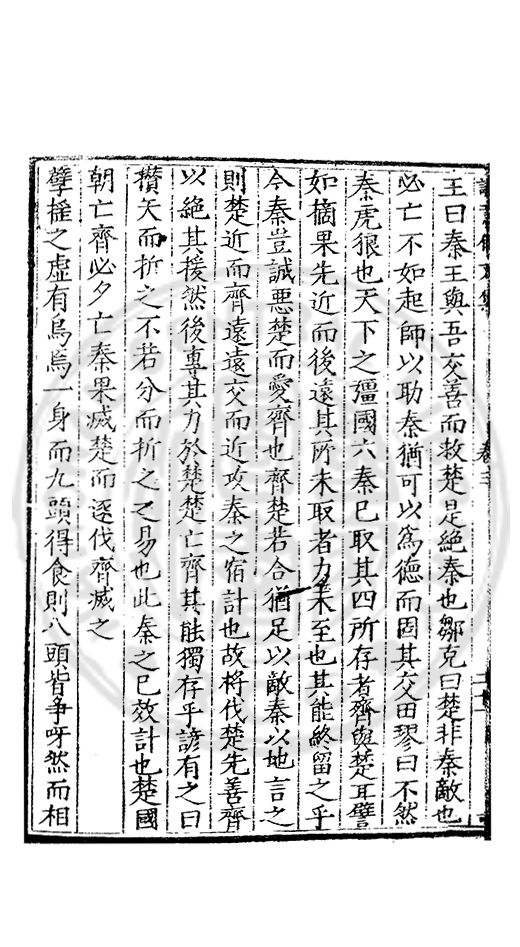 王曰秦王與吾交善而救楚是絕秦也鄒克曰楚非秦敵也
必亡不如起師以助秦猶可以爲德而固其交田璆曰不然
秦虎狼也天下之彊國六秦已取其四所存者齊與楚耳譬
如摘果先近而後遠其所未取者力未至也其能終留之乎
今秦豈誠惡楚而愛齊也齊楚若合猶足以敵秦以地言之
則楚近而齊遠遠交而近攻秦之宿計也故將伐楚先善齊
以絕其援然後專其力於楚楚亡齊其能獨存乎諺有之曰
攢矢而折之不若分而折之之易也此秦之已效計也楚國
朝亡齊必夕亡秦果滅楚而遂伐齊滅之
孽搖之虛有鳥焉一身而九頭得食則八頭皆爭呀然而相